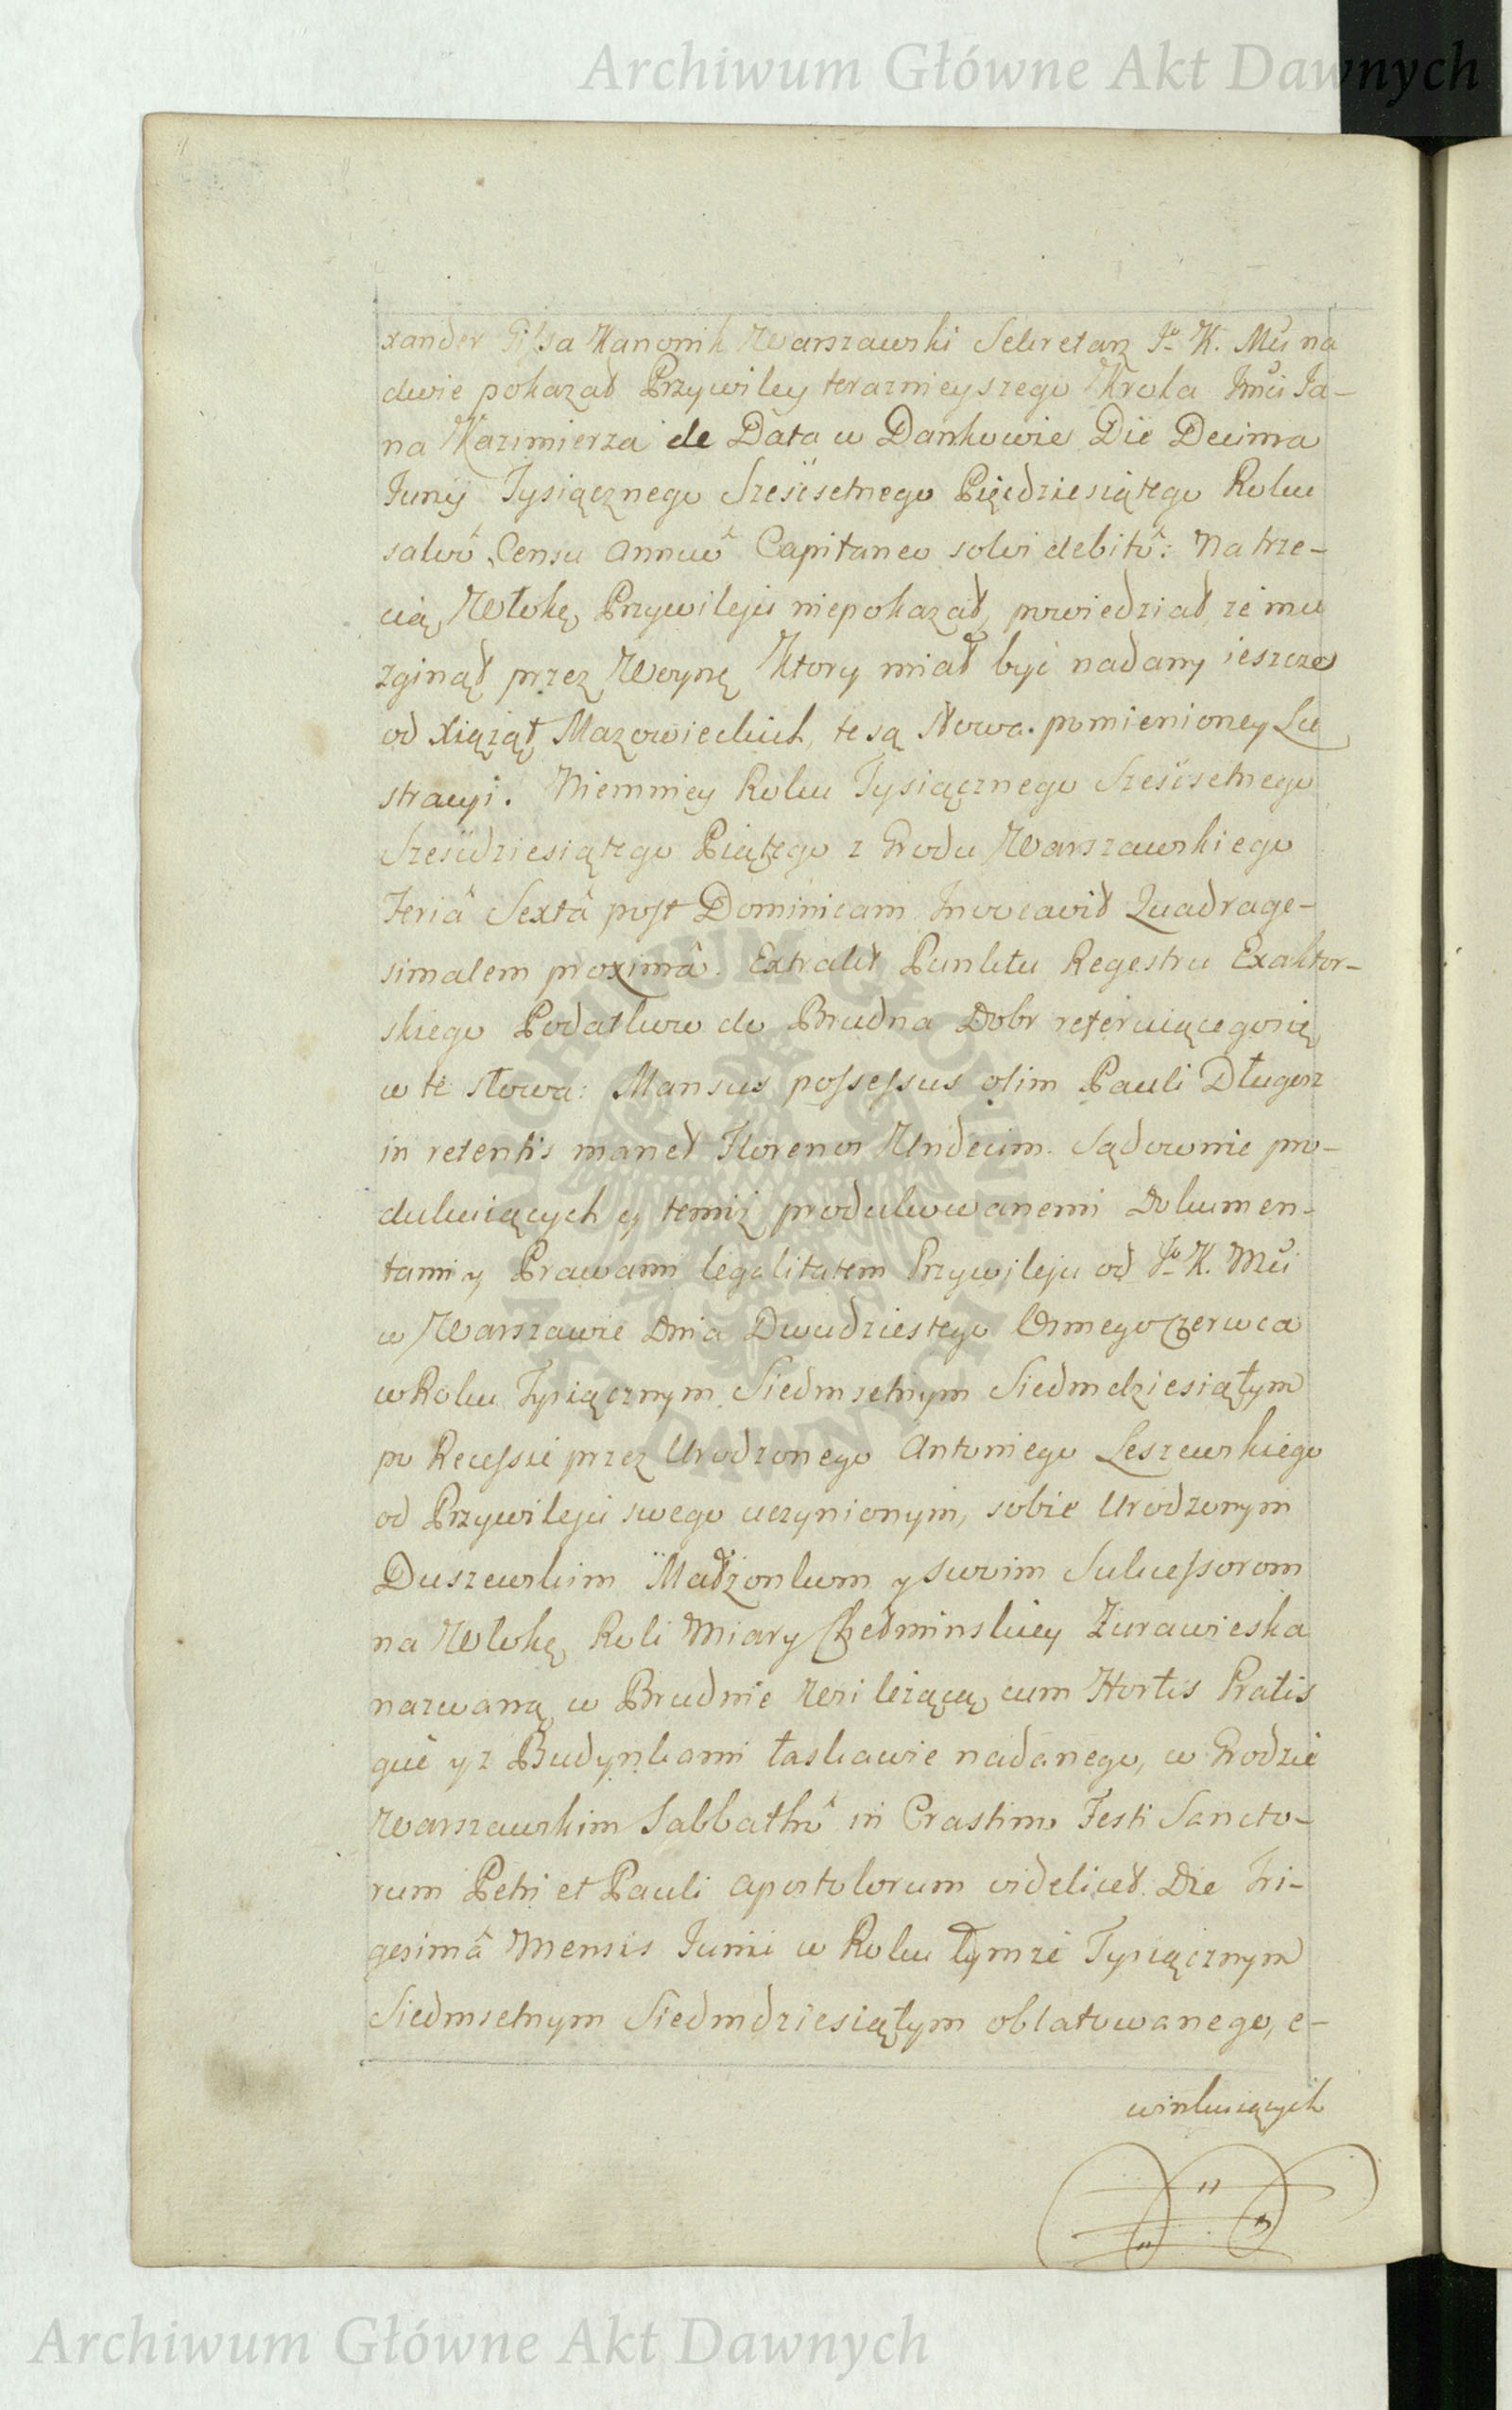 Archiwum Główne Akt Dawnych
xander Gissa Kanonik Warszawski Sekretarz Jo K. Mci na
dwie pokazał Przywiley teraznieyszego Krola Jmci Ja-
na Kazimierza de Data w Dankowie Die Decima
Junÿ Tysiącznego Sześćsetnego Pięćdziesiątego Roku
salvô Censu Annuô Capitaneo solvi debitô: Na trze-
cią Włokę Przywileju niepokazał, powiedział, że mu
zginął przez Woynę Ktory miał być nadany ieszcze
od Xiążąt Mazowieckich, te są słowa pomienioney Lu
stracyi. Niemniey Roku Tysiącznego Sześćsetnego
Sześćdziesiątego Piątego z Grodu Warszawskiego
Feriâ Sextâ post Dominicam Invocavit Quadrage-
simalem proximâ. Extrakt Punktu Regestru Exaktor-
skiego Podatkow do Brudna Dobr referuiącego się
w te słowa: Mansus possessus olim Pauli Długosz
in retentis manet Florenos Undecim. Sądownie pro-
dukuiących y temiż produkowanemi Dokumen-
tami y Prawami legalitatem Przywileju od Jo K. Mci
w Warszawie Dnia Dwudziestego Osmego Czerwca
w Roku Tysiącznym Siedmsetnym Siedmdziesiątym
po Recessie przez Urodzonego Antoniego Leszewskiego
od Przywileju swego uczynionym, sobie Urodzonym
Duszewskim Małżonkom y swoim Sukcessorom
na Włokę Roli Miary Chełminskiey Zurawieska
nazwaną w Brudnie Wsi leżącą cum Hortis Pratis
que y z Budynkami łaskawie nadanego, w Grodzie
Warszawskim Sabbathô in Crastino Festi Sancto-
rum Petri et Pauli Apostolorum videlicet Die Tri-
gesimâ Mensis Junii w Roku tymże Tysiącznym
Siedmsetnym Siedmdziesiątym oblatowanego, e-
winkuiących
ARCHIWUM GŁÓWNE AKT DAWNYCH
Archiwum Główne Akt Dawnych